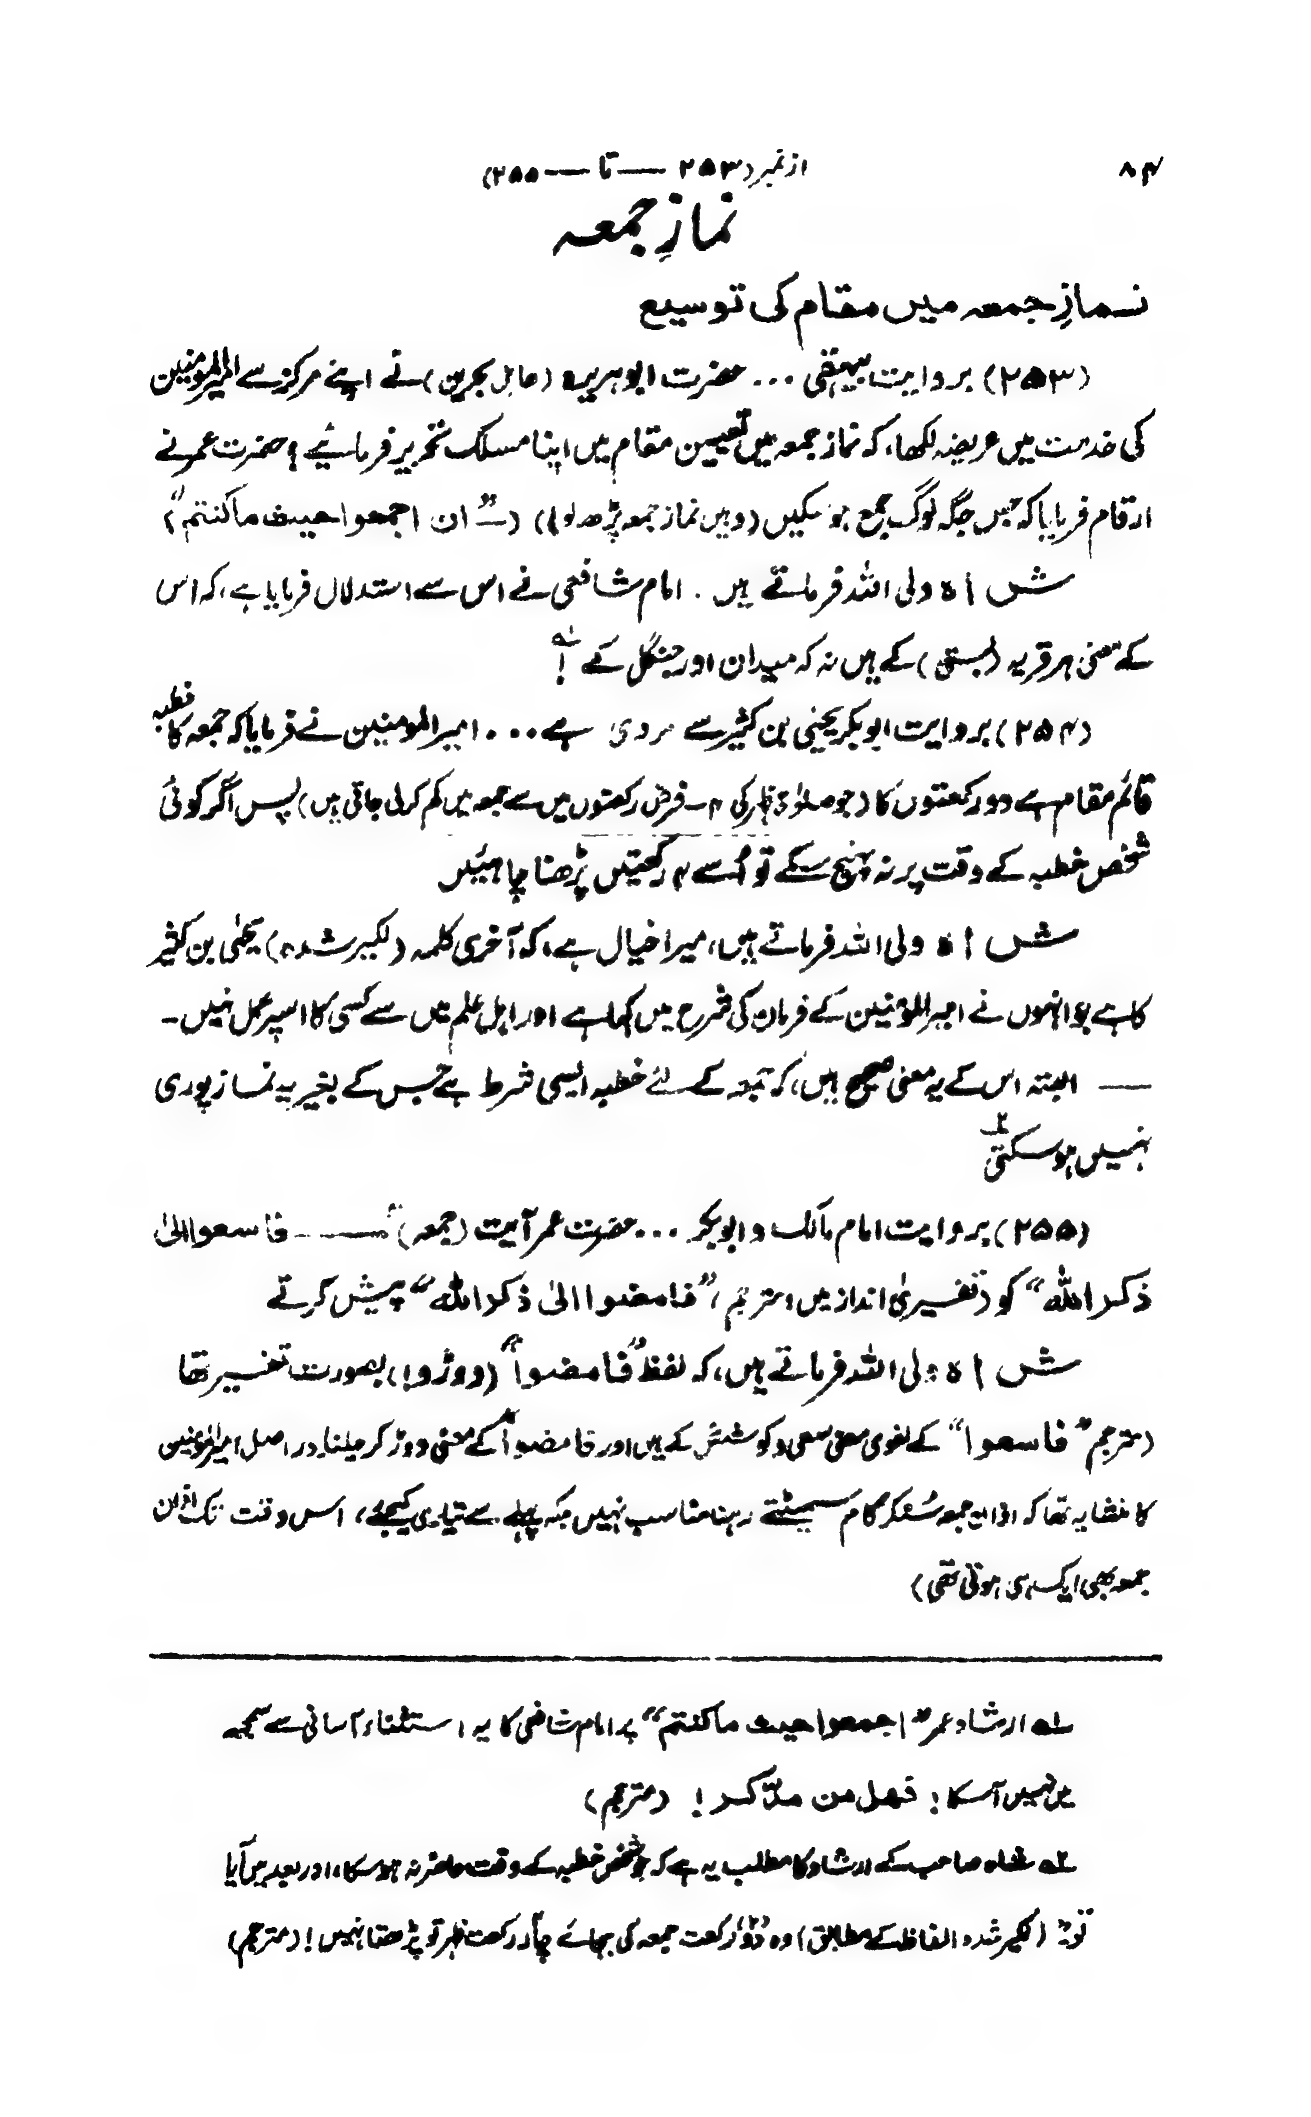 ۸۴
از نمبر (۲۵۳ — تا — ۲۵۵)
نمازِ جمعہ
نمازِ جمعہ میں مقام کی توسیع
(۲۵۳) بروایت بیہقی ... حضرت ابوہریرہ (عاملِ بحرین) نے اپنے مرکز سے امیرالمومنین
کی خدمت میں عریضہ لکھا، کہ نماز جمعہ میں تعیین مقام میں اپنا مسلک تحریر فرمائیے؟ حضرت عمر نے
ارقام فرمایا کہ جس جگہ لوگ جمع ہو سکیں (وہیں نماز جمعہ پڑھ لو!) (— "ان اجمعوا حیث ما کنتم")
شاہ ولی اللہ فرماتے ہیں۔ امام شافعی نے اس سے استدلال فرمایا ہے، کہ اس
کے معنی ہر قریہ (بستی) کے ہیں نہ کہ میدان اور جنگل کے !لہ
(۲۵۴) بروایت ابوبکر یحییٰ بن کثیر سے مروی ہے ... امیرالمومنین نے فرمایا کہ جمعہ کا خطبہ
قائم مقام ہے دو رکعتوں کا (جو صلوٰۃ ظہر کی ۴ – فرض رکعتوں میں سے جمعہ میں کم کر لی جاتی ہیں) پس اگر کوئی
شخص خطبہ کے وقت پر نہ پہنچ سکے تو اُسے ۴ رکعتیں پڑھنا چاہئیں
شاہ ولی اللہ فرماتے ہیں، میرا خیال ہے، کہ آخری کلمہ (لکیر شدہ) یحییٰ بن کثیر
کا ہے جو انہوں نے امیرالمؤمنین کے فرمان کی شرح میں کہا ہے اور اہل علم میں سے کسی کا اسپر عمل نہیں –
— البتہ اس کے یہ معنی صحیح ہیں، کہ جمعہ کے لئے خطبہ ایسی شرط ہے جس کے بغیر یہ نماز پوری
نہیں ہو سکتی ۲
(۲۵۵) بروایت امام مالک و ابوبکر ... حضرت عمر آیت (جمعہ) "—— فاسعوا الیٰ
ذکر اللہ" کو (تفسیری انداز میں، مترجم، "فامضوا الیٰ ذکر اللہ" پیش کرتے
شاہ ولی اللہ فرماتے ہیں، کہ لفظ "فامضوا" (دوڑو!) بصورت تفسیر تھا
(مترجم "فاسعوا" کے لغوی معنی سعی و کوشش کے ہیں اور فامضوا" کے معنی دوڑ کر چلنا۔ دراصل امیرالمومنین
کا منشا یہ تھا کہ اذانِ جمعہ سُنکر کام سمیٹتے رہنا مناسب نہیں بلکہ پہلے سے تیاری کیجئے، اس وقت تک اذان
جمعہ بھی ایک ہی ہوتی تھی)
لہ ارشاد عمر "اجمعوا حیث ما کنتم" پر امام شافعی کا یہ استثناء آسانی سے سمجھ
میں نہیں آسکا! فہل من مدّکر! (مترجم)
۲ہ شاہ صاحب کے ارشاد کا مطلب یہ ہے کہ جو شخص خطبہ کے وقت حاضر نہ ہو سکا، اور بعد میں آیا
تو (لکیر شدہ الفاظ کے مطابق) وہ دو رکعت جمعہ کی بجائے چار رکعت ظہر تو پڑھتا نہیں! (مترجم)